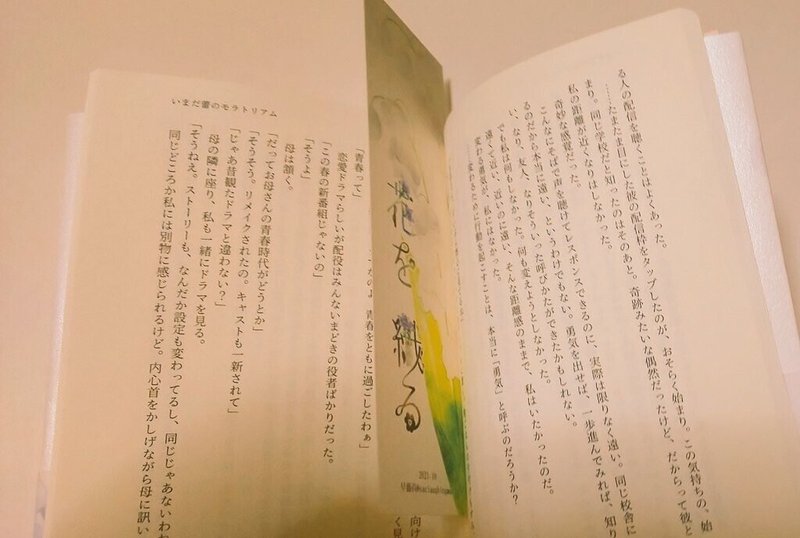 る人の配信を聴くことはよくあった。
……たまたま目にした彼の配信枠をタップしたのが、おそらく始まり。この気持ちの、始
まり。同じ学校だと知ったのはそのあと。奇跡みたいな偶然だったけど、だからって彼と
私の距離が近くなりはしなかった。
奇妙な感覚だった。
こんなにそばで声を聴けてレスポンスできるのに、実際は限りなく遠い。同じ校舎に
いるのだから本当に遠い、というわけでもない。勇気を出せば、一歩進んでみれば、知り
い、なり、友人、なりそういった呼びかたができたかもしれない。
でも私は何もしなかった。何も変えようとしなかった。
遠くて近い、近いのに遠い、そんな距離感のままで、私はいたかったのだ。
変わる勇気が、私にはなかった。
変わるために行動を起こすことは、本当に「勇気」と呼ぶのだろうか？
花を織る
2021.10
いまだ蕾のモラトリアム
なのよ 青春をともに過ごしたわぁ」
「青春って」
恋愛ドラマらしいが配役はみんないまどきの役者ばかりだった。
「この春の新番組じゃないの」
「そうよ」
母は頷く。
「だってお母さんの青春時代がどうとか」
「そうそう。リメイクされたの。キャストも一新されて」
「じゃあ昔観たドラマと違わない？」
母の隣に座り、私も一緒にドラマを見る。
「そうねえ。ストーリーも、なんだか設定も変わってるし、同じじゃあないわね
同じどころか私には別物に感じられるけど。内心首をかしげながら母に訊い
向け
く見